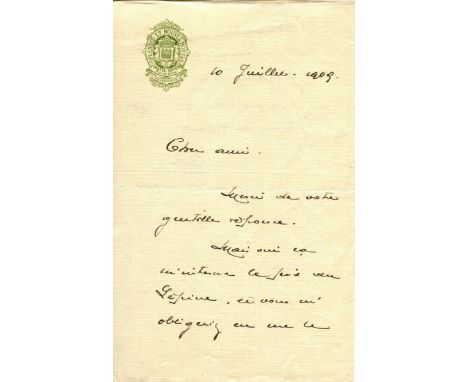 10 Juillet. 1909.
Cher ami.
Merci de votre
gentille réponse.
Mais oui ça
m'intéresse le prix du
Lépine, et vous m'
obligeriez en me le